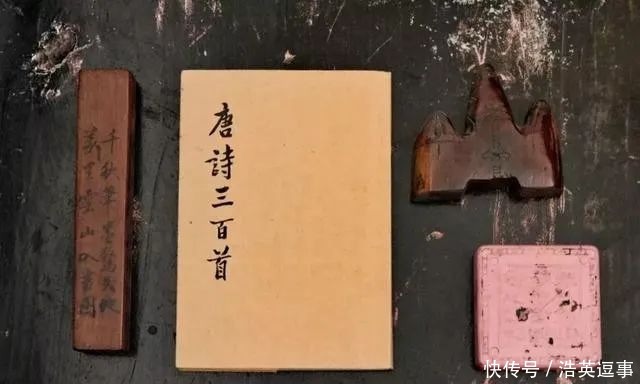 千秋筆墨驚天地
萬里雲山入畫圖
唐詩三百首
快传号／浩英逗事